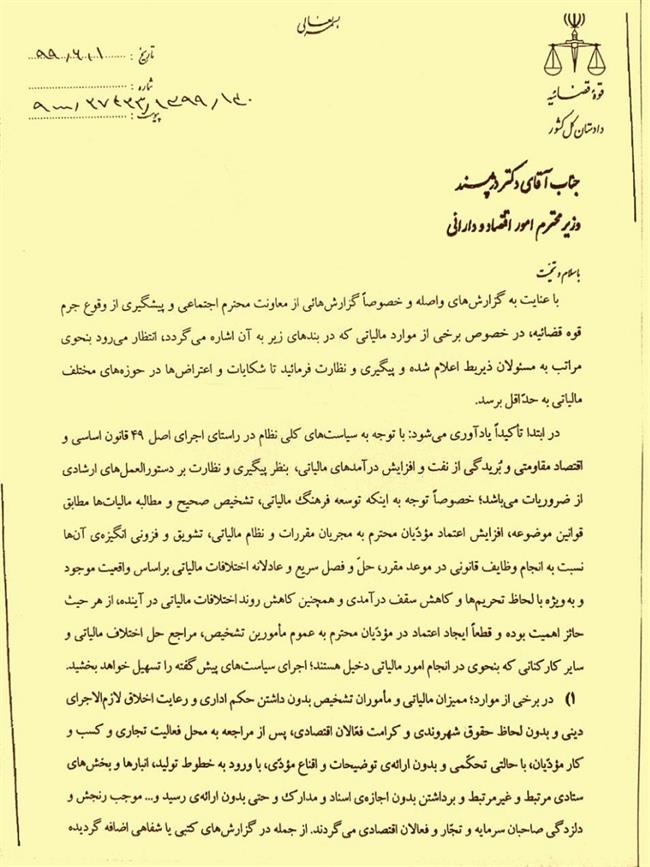 بسمه تعالی
قوه قضائیه
دادستان کل کشور
تاریخ : ۹۹/۶/۱
شماره :
پیوست :
۹۰۰۰/۲۷۴۲۳/۱۳۹۹/۱۴۰
جناب آقای دکتر دژپسند
وزیر محترم امور اقتصاد و دارائی
با سلام و تحیّت
با عنایت به گزارش‌های واصله و خصوصاً گزارش‌هائی از معاونت محترم اجتماعی و پیشگیری از وقوع جرم
قوه قضائیه، در خصوص برخی از موارد مالیاتی که در بندهای زیر به آن اشاره می‌گردد، انتظار می‌رود بنحوی
مراتب به مسئولان ذیربط اعلام شده و پیگیری و نظارت فرمائید تا شکایات و اعتراض‌ها در حوزه‌های مختلف
مالیاتی به حدّاقل برسد.
در ابتدا تأکیداً یادآوری می‌شود: با توجه به سیاست‌های کلی نظام در راستای اجرای اصل ۴۹ قانون اساسی و
اقتصاد مقاومتی و بُریدگی از نفت و افزایش درآمدهای مالیاتی، بنظر پیگیری و نظارت بر دستورالعمل‌های ارشادی
از ضروریات می‌باشد؛ خصوصاً توجه به اینکه توسعه فرهنگ مالیاتی، تشخیص صحیح و مطالبه مالیات‌ها مطابق
قوانین موضوعه، افزایش اعتماد مؤدّیان محترم به مجریان مقررات و نظام مالیاتی، تشویق و فزونی انگیزه‌ی آن‌ها
نسبت به انجام وظایف قانونی در موعد مقرر، حلّ و فصل سریع و عادلانه اختلافات مالیاتی براساس واقعیت موجود
و به‌ویژه با لحاظ تحریم‌ها و کاهش سقف درآمدی و همچنین کاهش روند اختلافات مالیاتی در آینده، از هر حیث
حائز اهمیت بوده و قطعاً ایجاد اعتماد در مؤدّیان محترم به عموم مأمورین تشخیص، مراجع حل اختلاف مالیاتی و
سایر کارکنانی که بنحوی در انجام امور مالیاتی دخیل هستند؛ اجرای سیاست‌های پیش گفته را تسهیل خواهد بخشید.
۱) در برخی از موارد؛ ممیزان مالیاتی و مأموران تشخیص بدون داشتن حکم اداری و رعایت اخلاق لازم‌الاجرای
دینی و بدون لحاظ حقوق شهروندی و کرامت فعّالان اقتصادی، پس از مراجعه به محل فعالیت تجاری و کسب و
کار مؤدّیان، با حالتی تحکّمی و بدون ارائه‌ی توضیحات و اقناع مؤدّی، با ورود به خطوط تولید، انبارها و بخش‌های
ستادی مرتبط و غیرمرتبط و برداشتن بدون اجازه‌ی اسناد و مدارک و حتی بدون ارائه‌ی رسید و... موجب رنجش و
دلزدگی صاحبان سرمایه و تجّار و فعالان اقتصادی می‌گردند. از جمله در گزارش‌های کتبی یا شفاهی اضافه گردیده